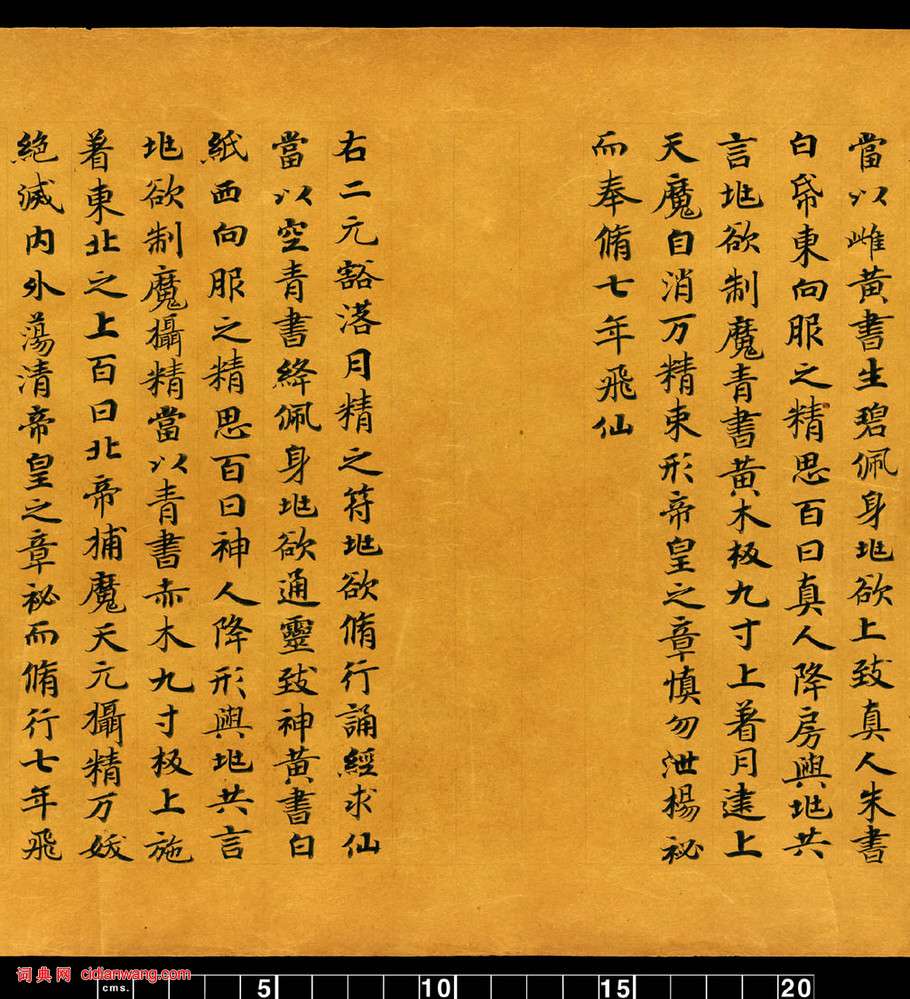 當以雌黃書生碧佩身也欲上致真人朱書
白帋東向服之精思百日真人降房與也共
言也欲制魔青書黃木板九寸上著月建上
天魔自消万精束形帝皇之章慎勿泄楊祕
而奉脩七年飛仙
右二元豁落月精之符也欲脩行誦經求仙
當以空青書絳佩身也欲通靈致神黃書白
紙西向服之精思百日神人降形與也共言
也欲制魔攝精當以青書赤木九寸板上施
著東北之上百日北帝捕魔天元攝精万妖
絕滅内外蕩清帝皇之章祕而脩行七年飛
词典网 cidianwang.com
cms. 5 10 15 20